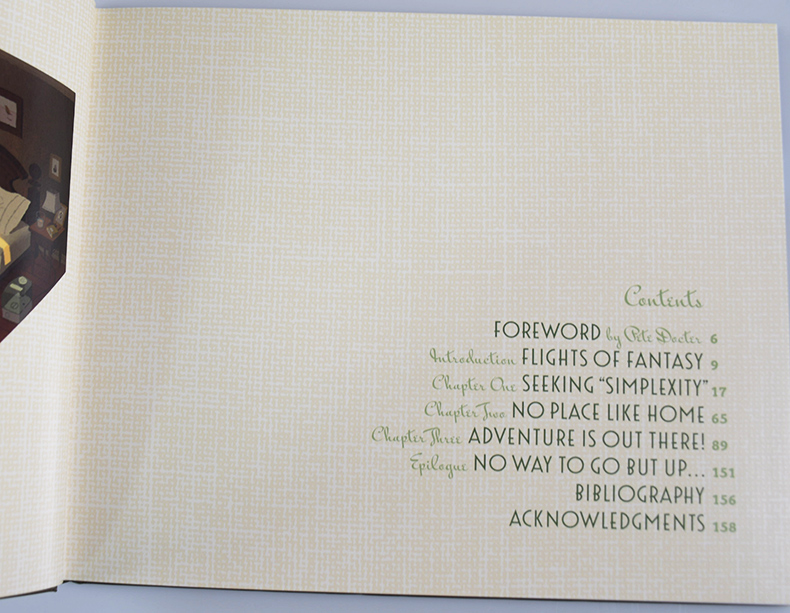 Contents
FOREWORD by Pete Docter 6
Introduction FLIGHTS OF FANTASY 9
Chapter One SEEKING “SIMPLEXITY” 17
Chapter Two NO PLACE LIKE HOME 65
Chapter Three ADVENTURE IS OUT THERE! 89
Epilogue NO WAY TO GO BUT UP... 151
BIBLIOGRAPHY 156
ACKNOWLEDGMENTS 158